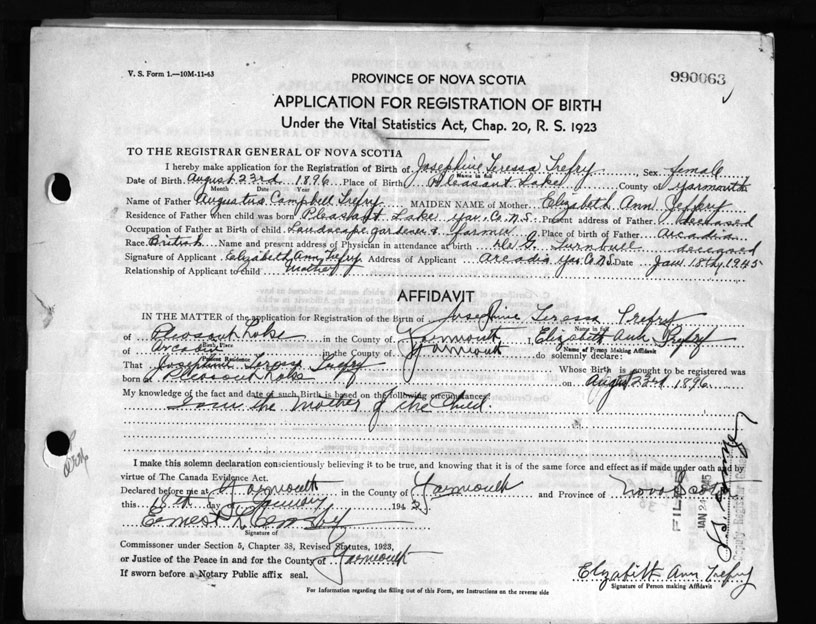 V. S. Form 1.—10M-11-63
990063
PROVINCE OF NOVA SCOTIA
APPLICATION FOR REGISTRATION OF BIRTH
Under the Vital Statistics Act, Chap. 20, R. S. 1923
TO THE REGISTRAR GENERAL OF NOVA SCOTIA
I hereby make application for the Registration of Birth of Josephine Teressa Trefry, Sex female
Name in full
Date of Birth August 23rd 1896 Place of Birth Pleasant Lake County of Yarmouth
Month Date Year
Name of Father Augustus Campbell Trefry MAIDEN NAME of Mother Elizabeth Ann Jeffery
Residence of Father when child was born Pleasant Lake Yar. Co. N.S. Present address of Father deceased
Occupation of Father at Birth of child Landscape gardener & farmer Place of birth of Father Arcadia
Race British Name and present address of Physician in attendance at birth Dr G. Turnbull deceased
Signature of Applicant Elizabeth Ann Trefry Address of Applicant Arcadia Yar. Co. N.S. Date Jan. 18th, 1945
Relationship of Applicant to child mother
AFFIDAVIT
IN THE MATTER of the application for Registration of the Birth of Josephine Teressa Trefry
Name in full
of Pleasant Lake in the County of Yarmouth I, Elizabeth Ann Trefry
Birth Place Name of Person Making Affidavit
of Arcadia in the County of Yarmouth do solemnly declare:
Present Residence
That Josephine Teressa Trefry Whose Birth is sought to be registered was
born at Pleasant Lake on August 23rd 1896
My knowledge of the fact and date of such Birth is based on the following circumstances
I am the Mother of the Child.
I make this solemn declaration conscientiously believing it to be true, and knowing that it is of the same force and effect as if made under oath and by
virtue of The Canada Evidence Act.
Declared before me at Yarmouth in the County of Yarmouth and Province of Nova Scotia
this 18th day of January 1945
FILED
JAN 24 1945
Deputy Registrar
Signature of
Commissioner under Section 5, Chapter 38, Revised Statutes, 1923,
or Justice of the Peace in and for the County of Yarmouth
If sworn before a Notary Public affix seal.
Elizabeth Ann Trefry
Signature of Person making Affidavit
For Information regarding the filling out of this Form, see Instructions on the reverse side